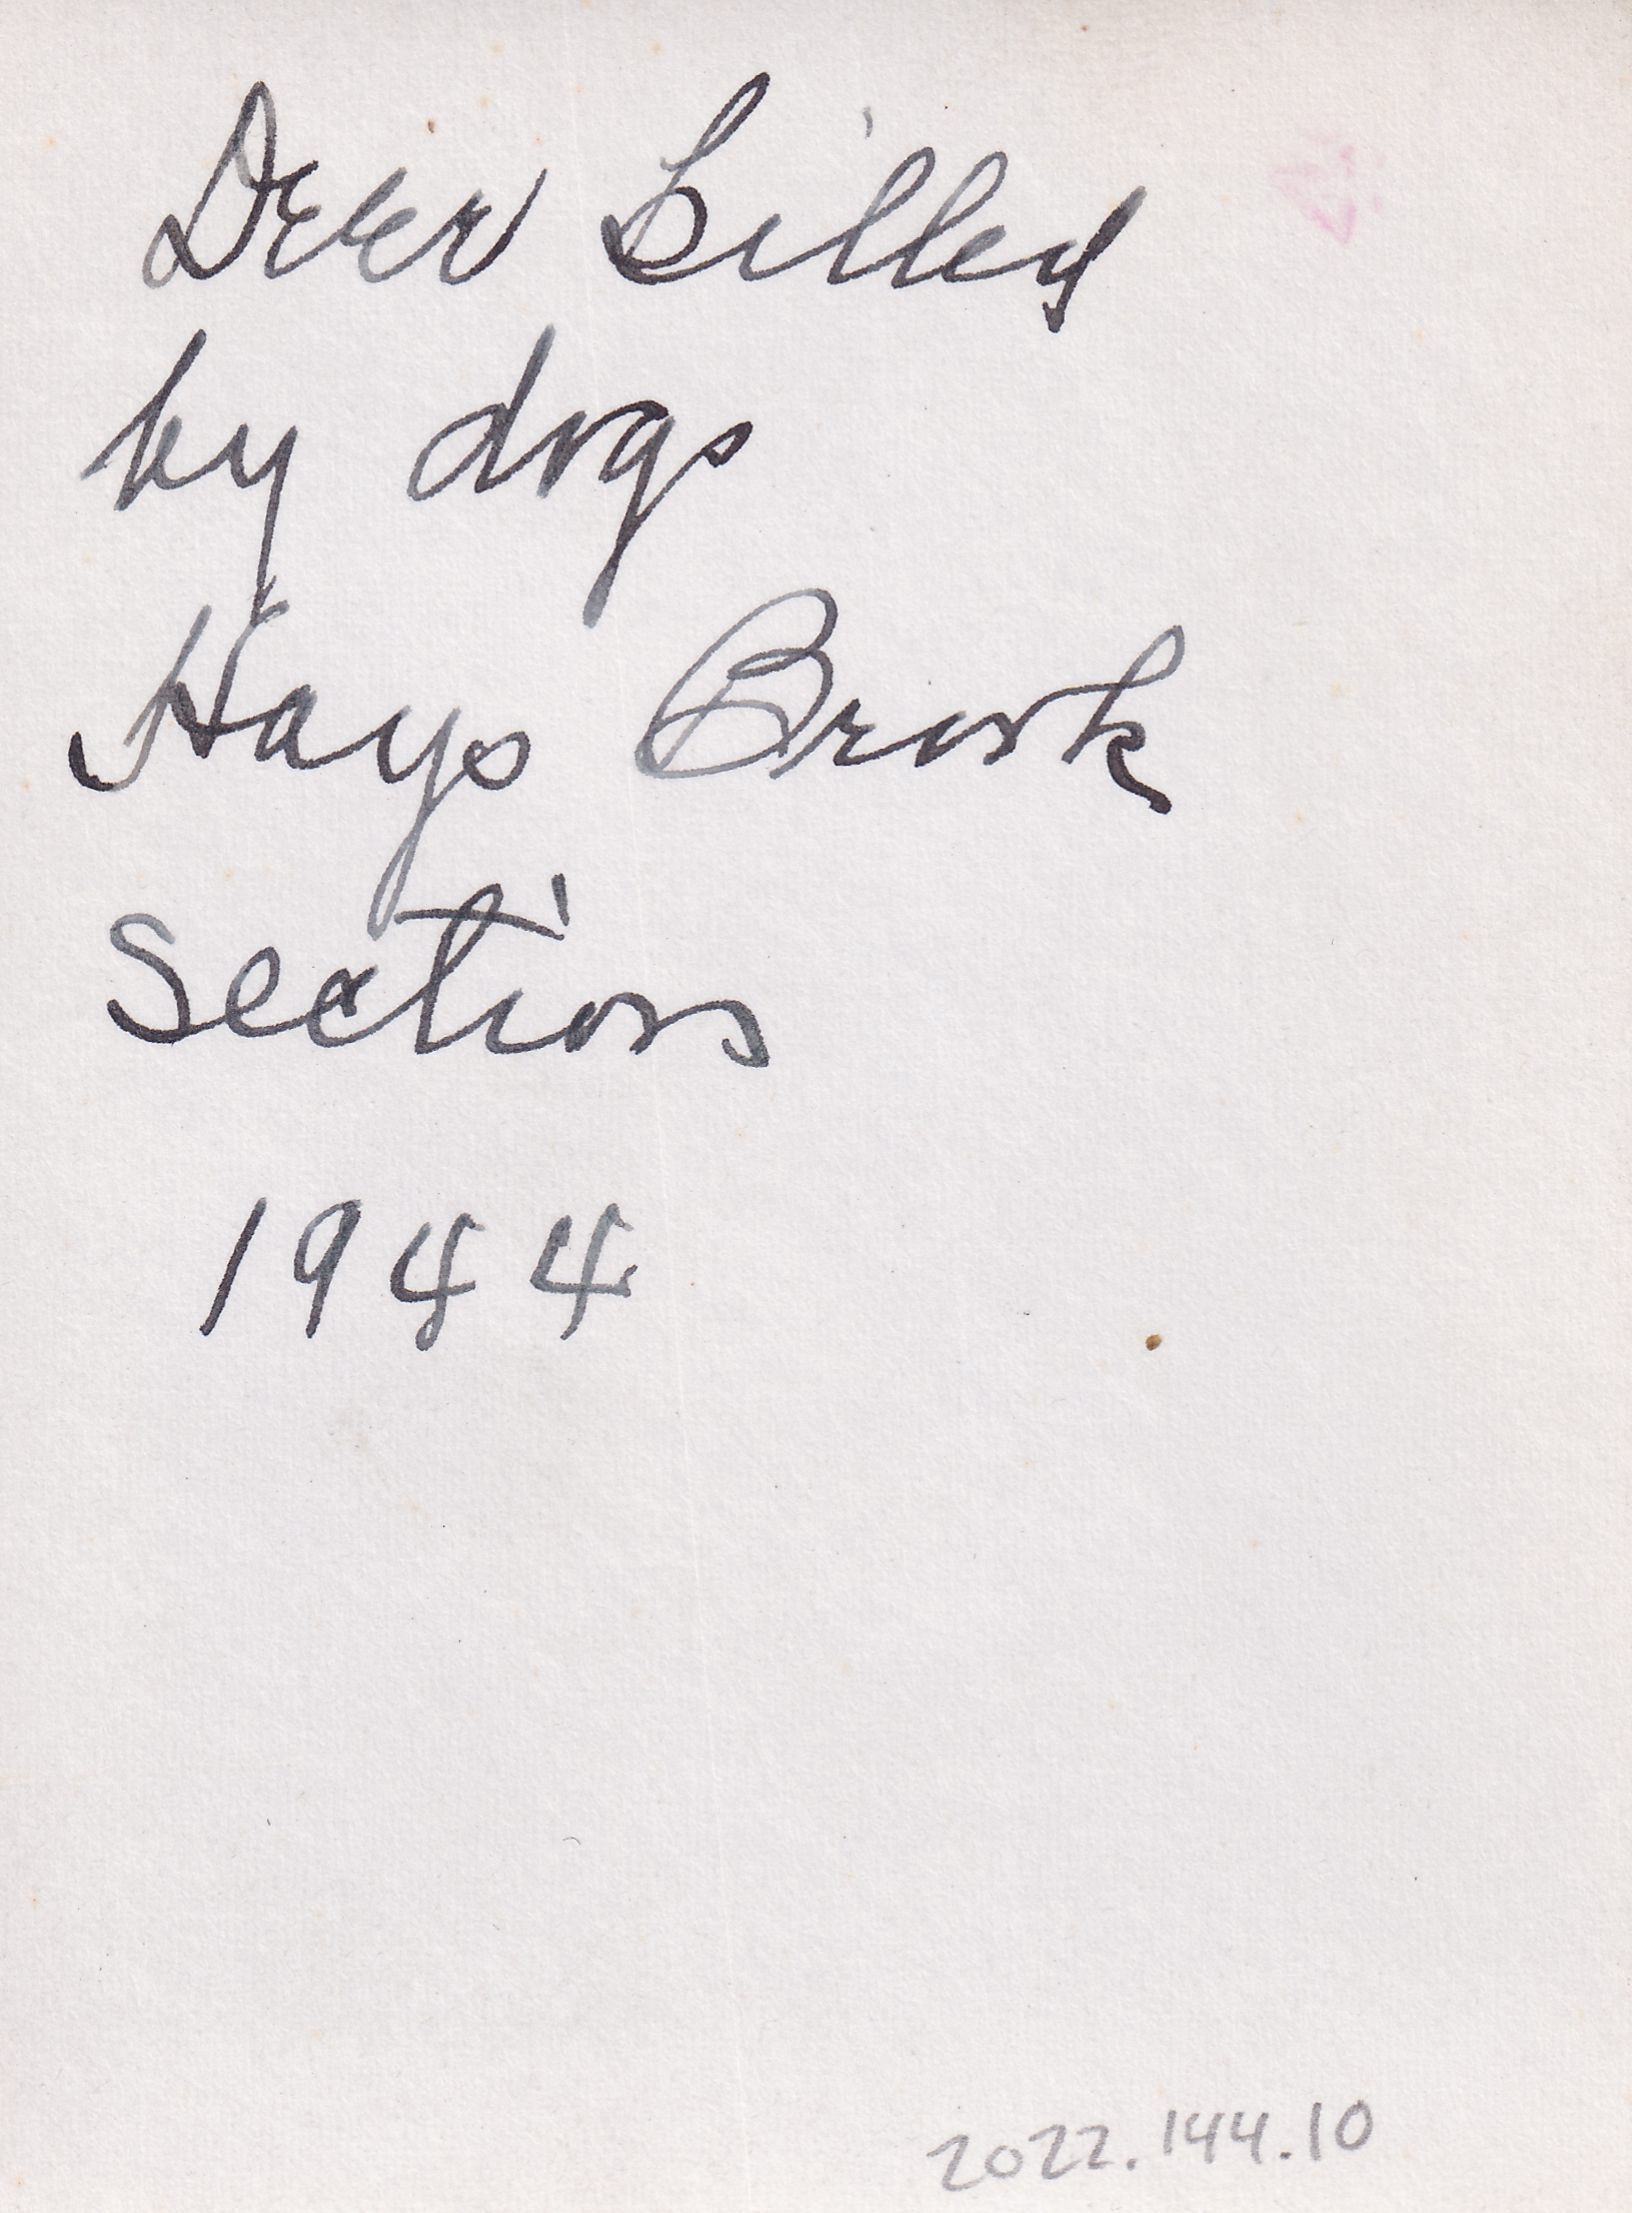 Deer killed
by dogs
Hays Brook
Section
1944
2022.144.10